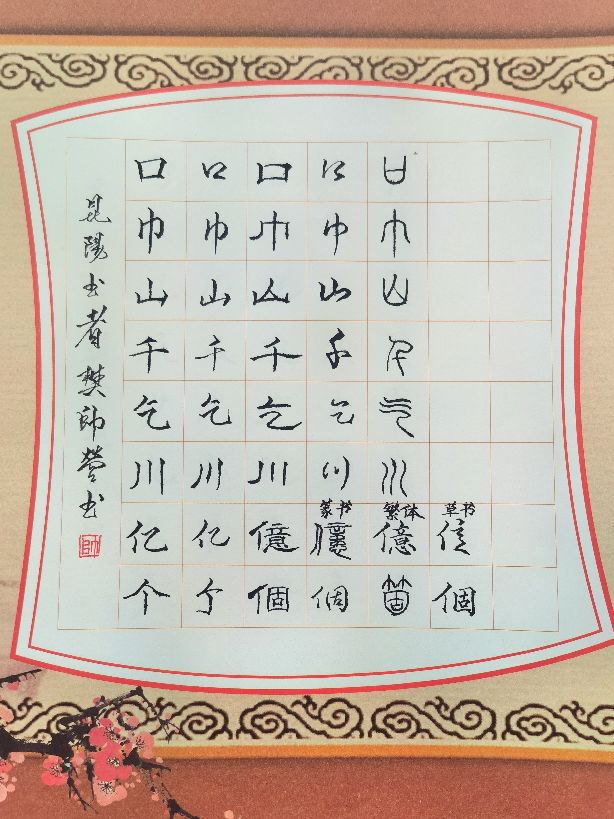 口 口 口 口 口
巾 巾 巾 巾 巾
山 山 山 山 山
千 千 千 千 千
乞 乞 乞 乞 气
川 川 川 川 川
篆书 繁体 草书
亿 亿 億 億 億 信
个 个 個 個 箇 個
昆陽书者樊帅营书
帅